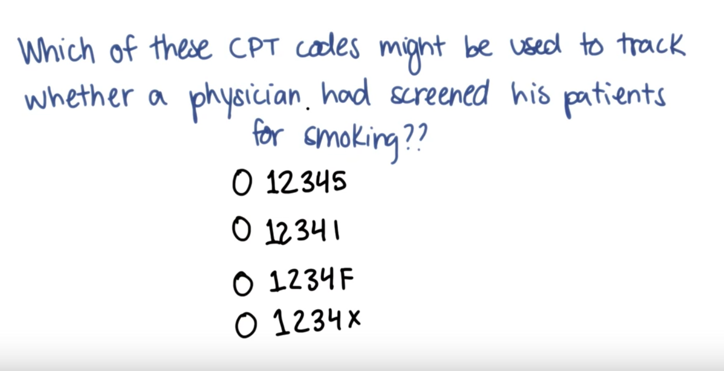 Which of these CPT codes might be used to track
whether a physician. had screened his patients
for smoking??
O 12345
O 12341
O 1234F
O 1234X